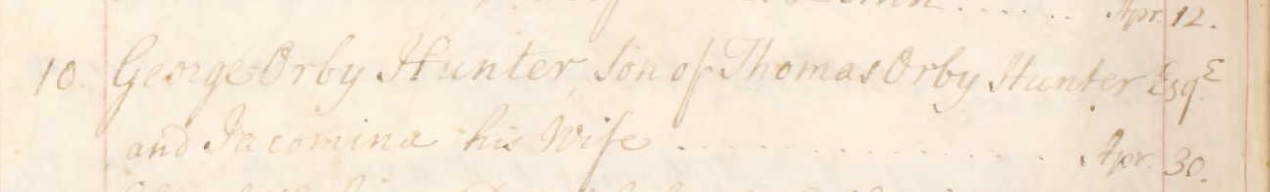 Apr. 12.
10. George Orby Hunter, Son of Thomas Orby Hunter Esqr.
and Jacomina his Wife . . . . . . . . . . . . . . Apr. 30.